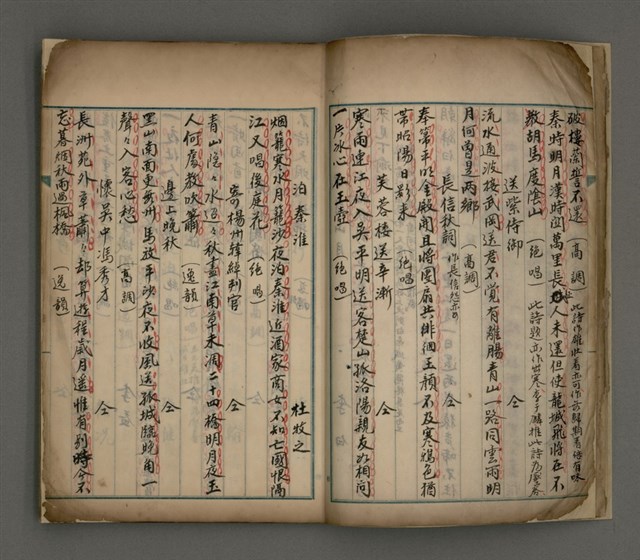 破樓蘭誓不還 （高調）
秦時明月漢時関萬里長征人未還但使龍城飛將在不
教胡馬度陰山 （絶唱）
送柴侍御 仝
流水通波接武岡送君不覺有離腸青山一路同雲雨明
月何曽是両鄉 （高調）
長信秋詞 仝
奉箒平明金殿開且將團扇共徘徊玉顔不及寒鴉色猶
帶昭陽日影来 （絶唱）
芙蓉樓送辛漸 仝
寒雨連江夜入吴平明送客楚山孤洛陽親友如相问
一片冰心在玉壺 （絶唱）
泊秦淮 杜牧之
烟籠寒水月籠沙夜泊秦淮近酒家商女不知亡國恨隔
江又唱後庭花 （絶唱）
寄楊州韓綽判官 仝
青山隐々水迢々秋盡江南草未凋二十四橋明月夜玉
人何處教吹簫 （逸韻）
邊上晚秋 仝
黑山南面更無州馬放平沙夜不收風送孤城臨晚角一
聲々入客心愁 （高調）
懐吴中馮秀才 仝
長洲苑外草蕭々却算遊程歲月遥惟有别時今不
忘暮烟秋雨過楓橋 （逸韻）